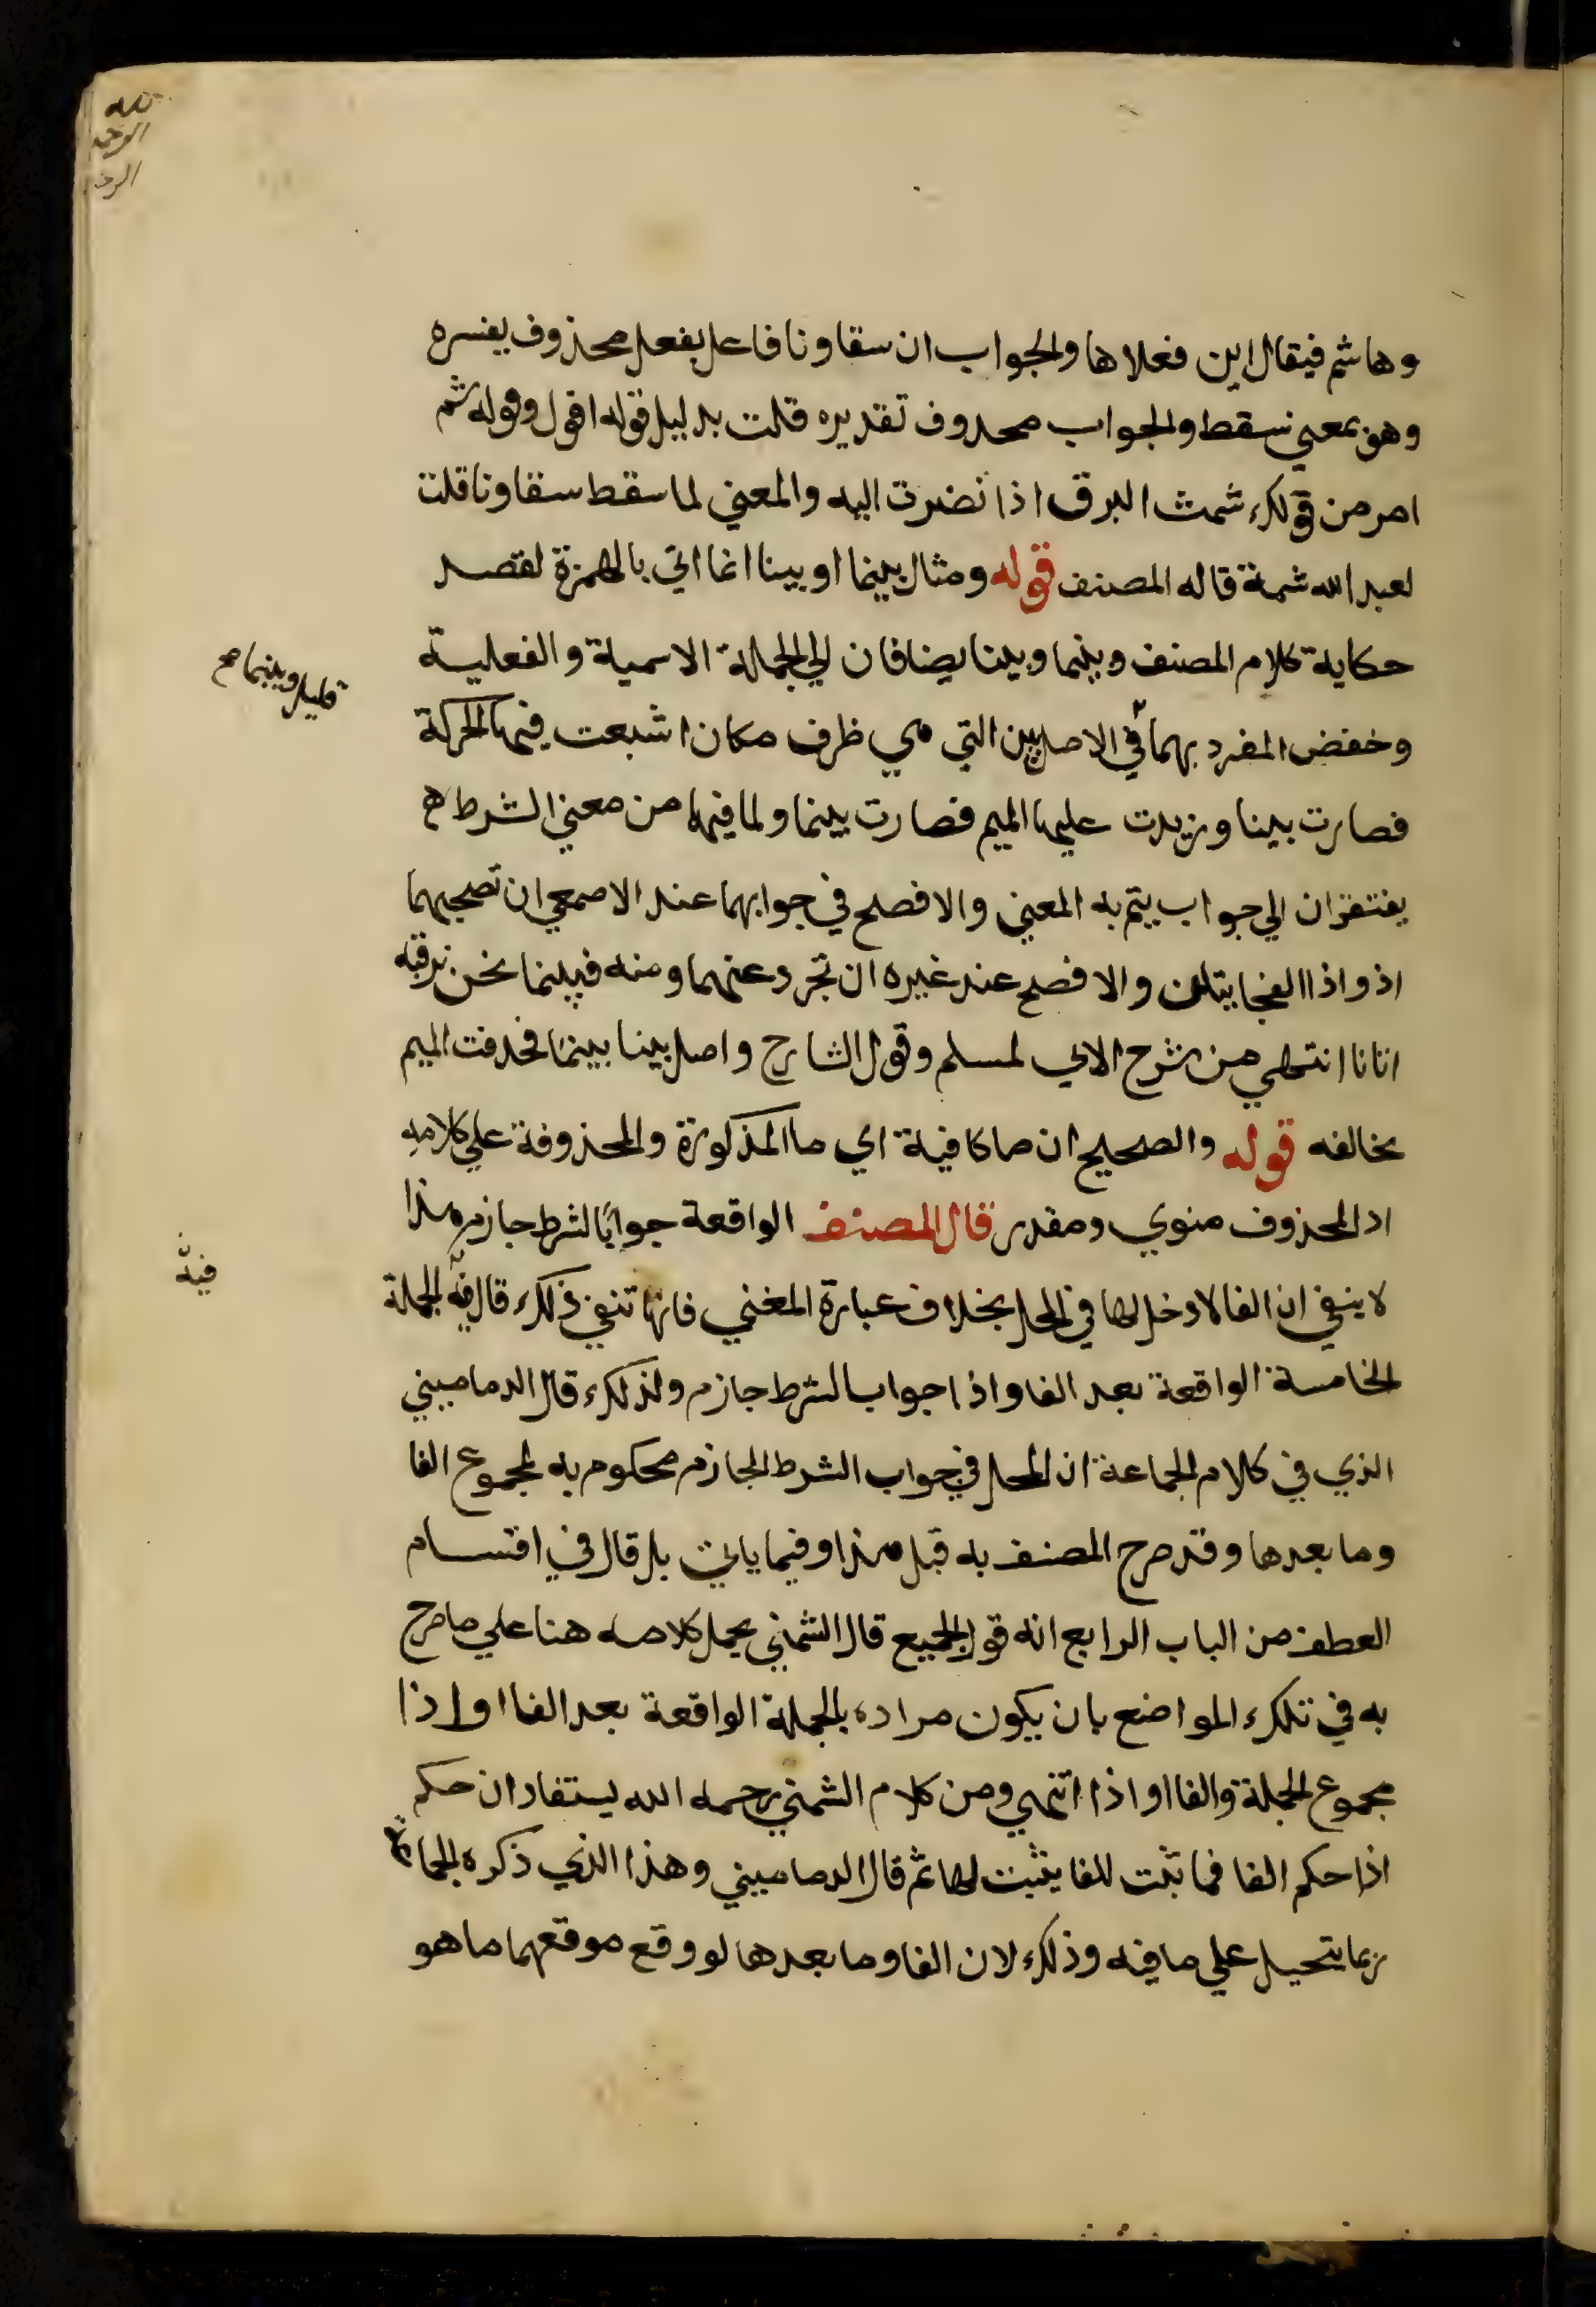 لله
الرحمن
الرحـ
وهاشم فيقال اين فعلاها والجواب ان سقاونا فاعل بفعل محذوف يفسره
وهو بمعني نسقط والجواب محدوف تقديره قلت بدليل قوله اقول وقوله شم
امر من قولك شمت البرق اذا نضرت اليه والمعني لما سقط سقاونا قلت
لعبد الله شمة قاله المصنف قوله ومثال بينما او بينا انما اتي بالهمزة لقصد
حكاية كلام المصنف وبينما وبينا يضافان الي الجملة الاسمية والفعلية
وخفض المفرد بهما في الاصل بين التي هي ظرف مكان اشبعت فيها الحركة
قليل وبينما صح
فصارت بينا وزيدت عليها الميم فصارت بينما ولما فيها من معني الشرط
يفتقران الي جواب يتم به المعني والافصح في جوابهما عند الاصمعي ان تصحبهما
اذ واذا الفجايتان والافصح عند غيره ان تجرد عنهما ومنه فبينما نحن نرقبه
اتانا انتهي من شرح الابي لمسلم وقول الشارح واصل بينا بينما فحدفت الميم
يخالفه قوله والصحيح ان ما كافية اي ما المذكورة والمحذوفة علي كلامه
اد المحذوف منوي ومقدر قال المصنف الواقعة جوابا لشرط جازم هذا
لا ينفي ان الفا لا دخل لها في المحل بخلاف عبارة المغني فانها تنفي ذلك قال فيه الجملة
فيه
الخامسة الواقعة بعد الفا واذا جواب الشرط جازم ولذلك قال الدماميني
الذي في كلام الجماعة ان المحل في جواب الشرط الجازم محكوم به لمجموع الفا
وما بعدها وقد صرح المصنف به قبل هذا وفيما ياتي بل قال في اقسام
العطف من الباب الرابع انه قول الجميع قال الشمني يحمل كلامه هنا علي ما صرح
به في تلك المواضع بان يكون مراده بالجملة الواقعة بعد الفا او اذا
مجموع الجملة والفا او اذا انتهي ومن كلام الشمني رحمه الله يستفاد ان حكم
اذا حكم الفا فما ثبت للفا يثبت لها ثم قال الدماميني وهذا الذي ذكره الجماعة
ربما يتحيل علي ما فيه وذلك لان الفا وما بعدها لو وقع موقعهما ما هو